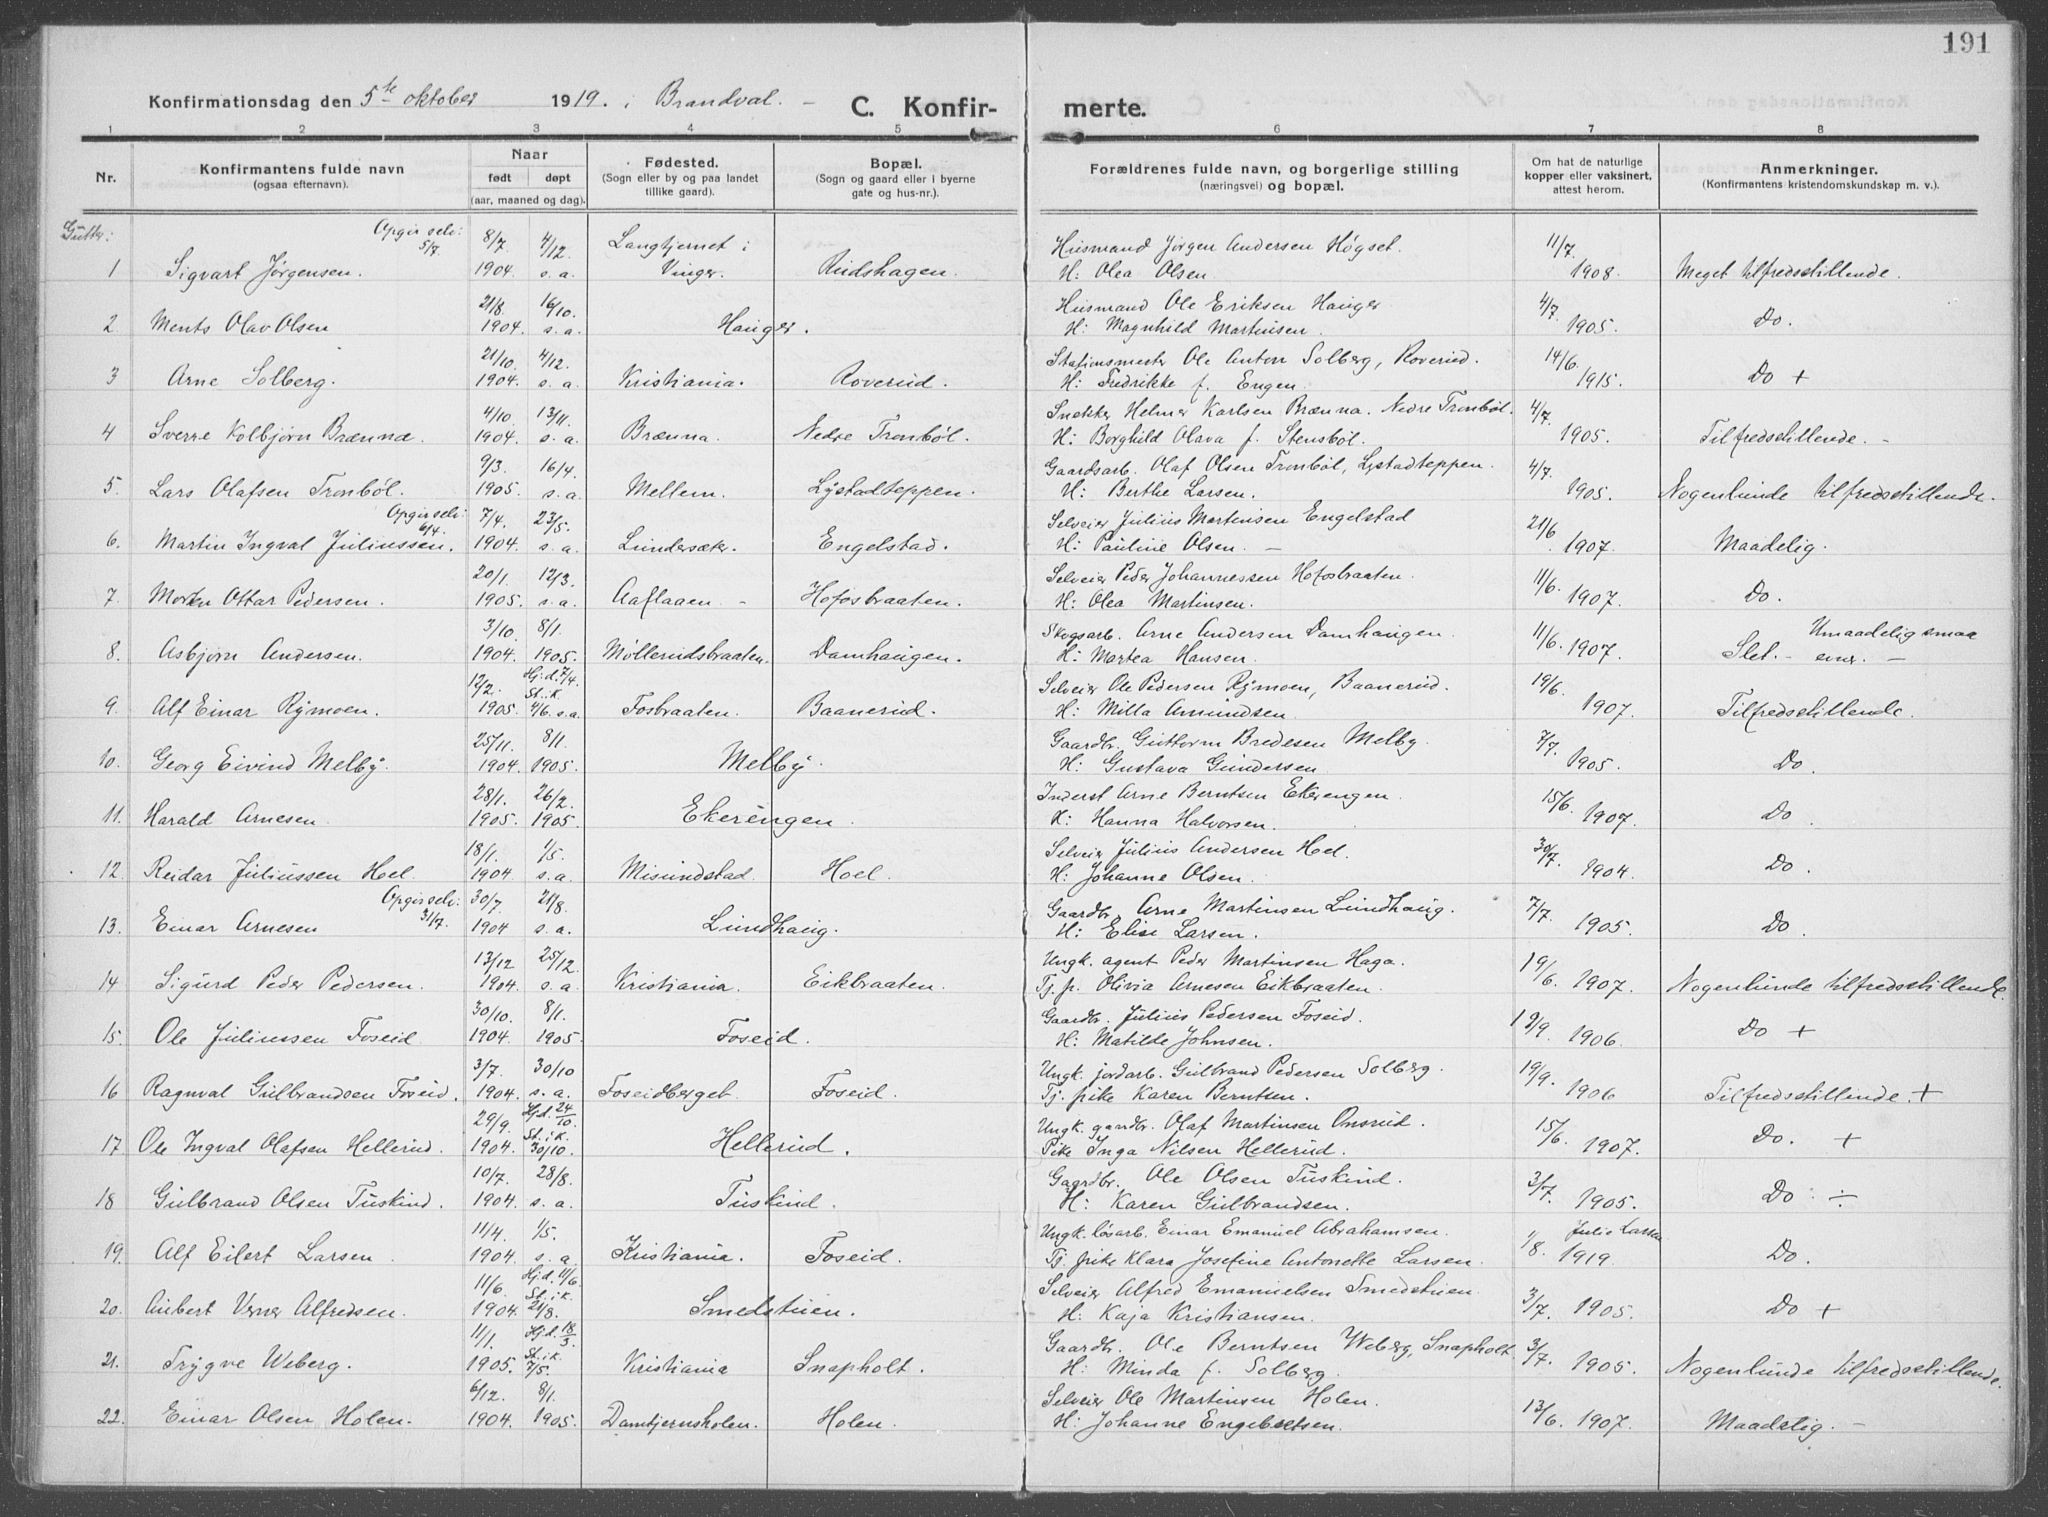 191
Konfirmationsdag den 5te oktober 1919. i Brandval. –
C. Konfir-merte.
1 2 3 4 5 6 7 8
Nr. Konfirmantens fulde navn (ogsaa efternavn). Naar født døpt (aar, maaned og dag). Fødested. (Sogn eller by og paa landet tillike gaard). Bopæl. (Sogn og gaard eller i byerne gate og hus-nr.). Forældrenes fulde navn, og borgerlige stilling (næringsvei) og bopæl. Om hat de naturlige kopper eller vaksinert, attest herom. Anmerkninger. (Konfirmantens kristendomskundskap m. v.).
Gutter:
Opgir selv: 5/7. 8/7 4/12. Langtjernet i Husmand Jørgen Andersen Høgset. 11/7
1 Sigvart Jørgensen. 1904. s. a. Vinger. Rudshagen. H: Olea Olsen. 1908. Meget tilfredsstillende.
21/8. 16/10. Husmand Ole Eriksen Hauger 4/7
2 Ments Olav Olsen 1904. s. a. Hauger. H: Magnhild Martinsen. 1905. Do.
21/10. 4/12. Stationsmestr Ole Anton Solberg, Roverud. 14/6
3 Arne Solberg. 1904. s. a. Kristiania. Roverud. H: Fredrikke f. Engen. 1915. Do +
4/10. 13/11. Snekker Helmer Karlsen Brænna. Nedre Tronbøl. 4/7
4 Sverre Kolbjørn Brænna. 1904. s. a. Brænna. Nedre Tronbøl. H: Borghild Olava f. Stensbøl. 1905. Tilfredsstillende. –
9/3. 16/4. Gaardsarb. Olaf Olsen Tronbøl, Lystadteppen. 4/7.
5. Lars Olafsen Tronbøl. 1905. s. a. Mellem. Lystadteppen. H: Berthe Larsen. 1905. Nogenlunde tilfredsstillende.
Opgir selv: 6/4. 7/4. 23/5. Selveier Julius Martinsen Engelstad 21/6
6. Martin Ingval Juliussen. 1904. s. a. Lundersæter. Engelstad. H: Pauline Olsen. – 1907. Maadelig.
20/1. 12/3. Selveier Peder Johannessen Hofosbraaten. 11/6.
7. Morten Ottar Pedersen. 1905. s. a. Aaflaaen – Hofosbraaten. H: Olea Martinsen. 1907. Do.
3/10. 8/1. Skogsarb. Arne Andersen Damhaugen. 11/6. Umaadelig smaa
8. Asbjørn Andersen. 1904. 1905. Møllerudsbraaten. Damhaugen. H: Martea Hansen. 1907. Slet. – evner. –
12/2. Hj.d. 7/4. St. i K. Selveier Ole Pedersen Rymoen, Baanerud. 19/6.
9. Alf Einar Rymoen. 1905. 4/6. s. a. Fosbraaten. Baanerud. H: Milla Amundsen. 1907. Tilfredsstillende.
25/11. 8/1. Gaardbr. Guttorm Bredesen Melby 7/7.
10. Georg Eivind Melby. 1904. 1905. Melby. H: Gustava Gundersen 1905. Do.
28/1. 26/2. Inderst Arne Berntsen Ekerengen. 15/6
11. Harald Arnesen. 1905. 1905. Ekerengen. H: Hanna Halvorsen. 1907. Do.
18/1. 1/5. Selveier Julius Andersen Hoel. 30/7
12. Reidar Juliussen Hoel. 1904 s. a. Misundstad. Hoel. H: Johanne Olsen. 1904. Do.
Opgir selv: 31/7. 30/7. 21/8. Gaardbr. Arne Martinsen Lundhaug. 7/7.
13. Einar Arnesen 1904 s. a. Lundhaug. H: Elise Larsen. 1905. Do.
13/12 25/12. Ungk. agent Peder Martinsen Haga. 19/6
14 Sigurd Peder Pedersen. 1904. s. a. Kristiania. Eikbraaten. Tj. p. Olivia Arnesen Eikbraaten. 1907. Nogenlunde tilfredsstillende.
30/10. 8/1. Gaardbr. Julius Pedersen Foseid. 19/9
15. Ole Juliussen Foseid. 1904. 1905. Foseid. H: Matilde Johnsen. 1906. Do +
3/7. 30/10 Ungk. jordarb. Gulbrand Pedersen Solberg. 19/9.
16 Ragnval Gulbrandsen Foseid. 1904. s. a. Foseidberget. Foseid. Tj. pike Karen Berntsen. 1906 Tilfredsstillende. +
29/9. Hj.d. 24/10 St. i K. Ungk. gaardbr. Olaf Martinsen Onsrud. 15/6.
17 Ole Ingval Olafsen Hellerud. 1904. 30/10. Hellerud. Pike Inga Nilsen Hellerud. 1907. Do. +
10/7. 28/8. Gaardbr. Ole Olsen Tuskind. 3/7.
18 Gulbrand Olsen Tuskind. 1904. s. a. Tuskind. H: Karen Gulbrandsen. 1905. Do ÷
11/4. 1/5. Ungk. løsarb. Einar Emanuel Abrahamsen. 1/8. Julie Larsen
19. Alf Eilert Larsen. 1904. s. a. Kristiania. Foseid. Tj. pike Klara Josefine Antonette Larsen. 1919. Do.
11/6. Hj.d. 11/6. St. i K. Selveier Alfred Emanuelsen Smedstuen. 3/7.
20. Aubert Verner Alfredsen. 1904. 21/8. Smedstuen. H: Kaja Kristiansen. 1905. Do +
11/1. Hj.d. 18/3. St. i K. Gaardbr. Ole Berntsen Weberg, Snapholt 3/7.
21. Trygve Weberg. 1905. 7/5. Kristiania Snapholt. H: Minda f. Solberg. 1905. Nogenlunde tilfredsstillende.
6/12. 8/1. Selveier Ole Martinsen Holen. 13/6
22. Einar Olsen Holen. 1904. 1905. Damtjernsholen. Holen. H: Johanne Engebretsen. 1907. Maadelig. –